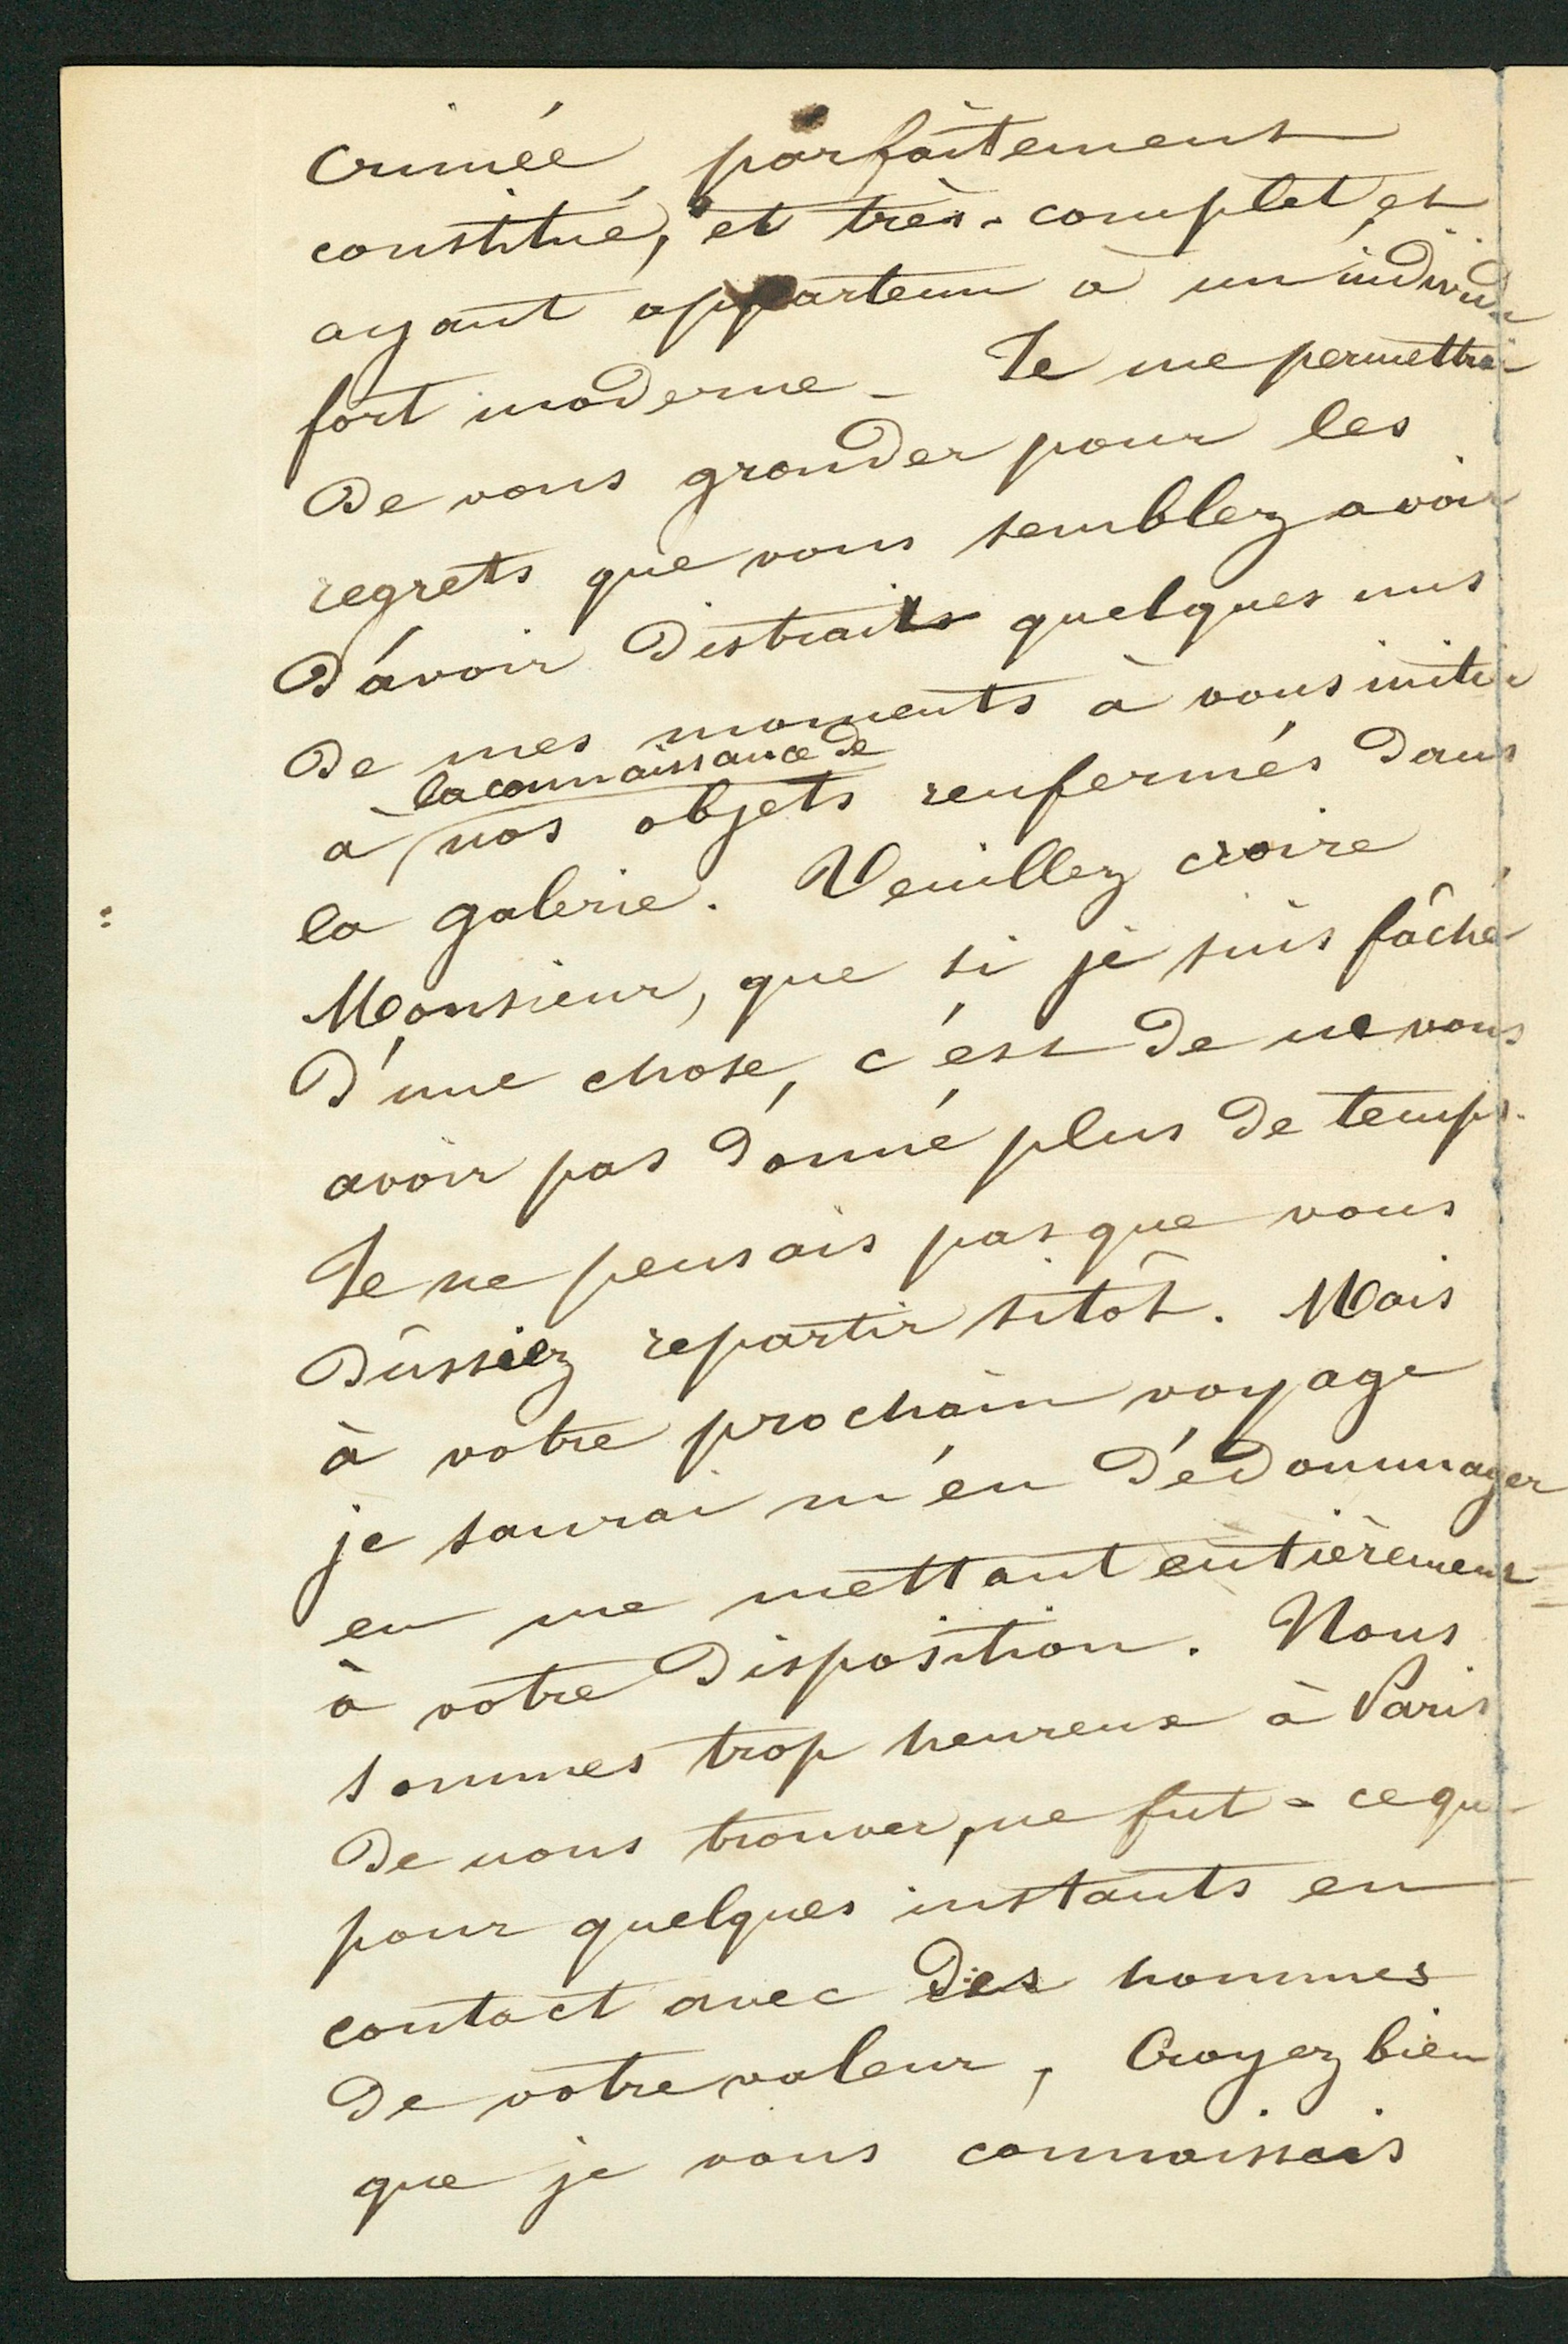 Crimée, parfaitement
constitué, et très-complet, et
ayant appartenu à un individu
fort moderne - Je me permettrai
de vous gronder pour les
regrets que vous semblez avoir
d'avoir distraits quelques uns
de mes moments à vous initier
la connaissance de
à nos objets renfermés dans
la galerie. Veuillez croire
Monsieur, que si je suis fâché
d'une chose, c'est de ne vous
avoir pas donné plus de temps.
Je ne pensais pas que vous
dûssiez repartir sitôt. Mais
à votre prochain voyage
je saurai m'en dédommager
en me mettant entièrement
à votre disposition. Nous
sommes trop heureux à Paris
de nous trouver, ne fut-ce que
pour quelques instants en
contact avec des hommes
de votre valeur, Croyez bien
que je vous connaissais